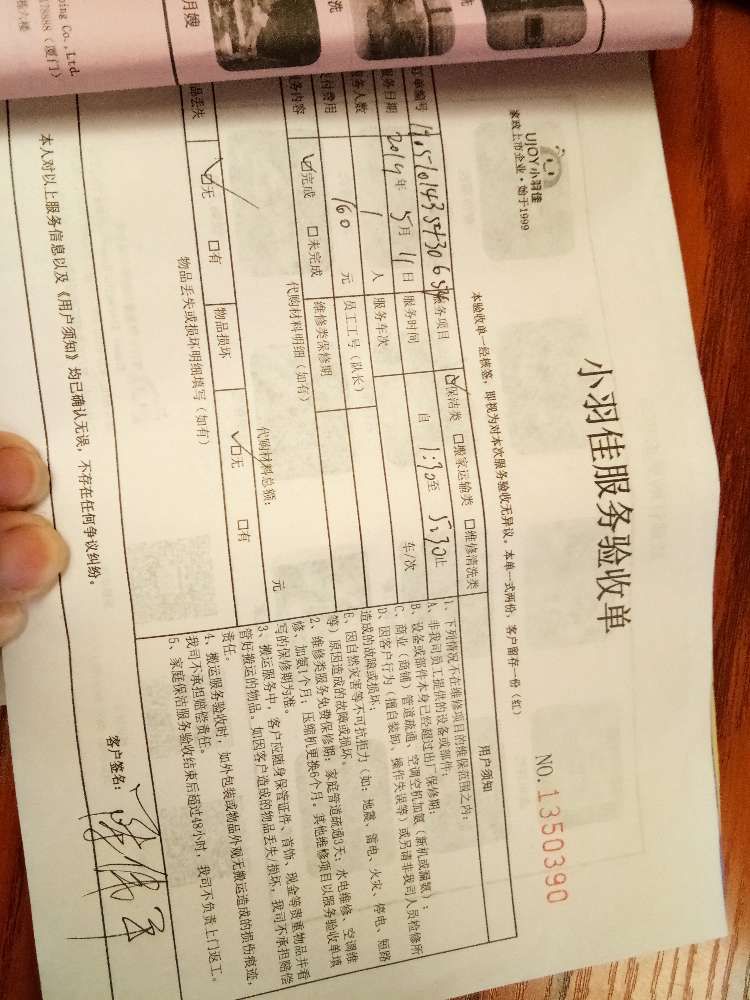 月嫂
洗
ping Co.,Ltd.
UJOY 小羽佳
家政上市企业·始于1999
小羽佳服务验收单
NO.1350390
本验收单一经核签，即视为对本次服务验收无异议。本单一式两份，客户留存一份（红）
单编号
服务项目
☑保洁类 □搬家运输类 □维修清洗类
服务日期 2019年 5月 11日
服务时间
自 1:30至 5:30止
务人数 1 人
服务车次
车/次
付费用 160 元
员工工号（队长）
务内容
☑完成 □未完成
维修类保修期
代购材料明细（如有）
代购材料总额： 元
品丢失
☑无 □有
物品损坏
☑无 □有
物品丢失或损坏明细填写（如有）
用户须知
1、下列情况不在维修项目的维保范围之内：
A、非我司员工提供的设备或部件；
B、设备或部件本身已经超过出厂保修期；
C、商业（商铺）管道疏通、空调空机加氨（新机或漏氨）；
D、因客户行为（擅自装卸、操作失误等）或另请非我司人员检修所
造成的故障或损坏；
E、因自然灾害等不可抗拒力（如：地震、雷电、火灾、停电、短路
等）原因造成的故障或损坏。
2、维修类服务免费保修期：家庭管道疏通3天；水电维修、空调维
修、加氨1个月；压缩机更换6个月。其他维修项目以服务验收单填
写的保修期为准。
3、搬运服务中，客户应随身保管证件、首饰、现金等贵重物品并看
管好搬运的物品。如因客户造成的物品丢失/损坏，我司不承担赔偿
责任。
4、搬运服务验收时，如外包装或物品外观无搬运造成的损伤痕迹，
我司不承担赔偿责任。
5、家庭保洁服务验收结束后超过48小时，我司不负责上门返工。
本人对以上服务信息以及《用户须知》均已确认无误，不存在任何争议纠纷。
客户签名：